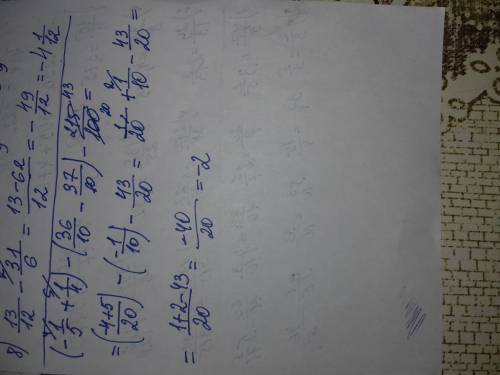 8) 13/12 - 31/6 = (13-62)/12 = -49/12 = -4 1/12
(-1/5 + 1/4) - (36/10 - 37/10) - 215 43/100 20 =
= (-4+5)/20) - (-1/10) - 43/20 = 1/20 + 1/10 - 43/20 =
= (1+2-43)/20 = -40/20 = -2